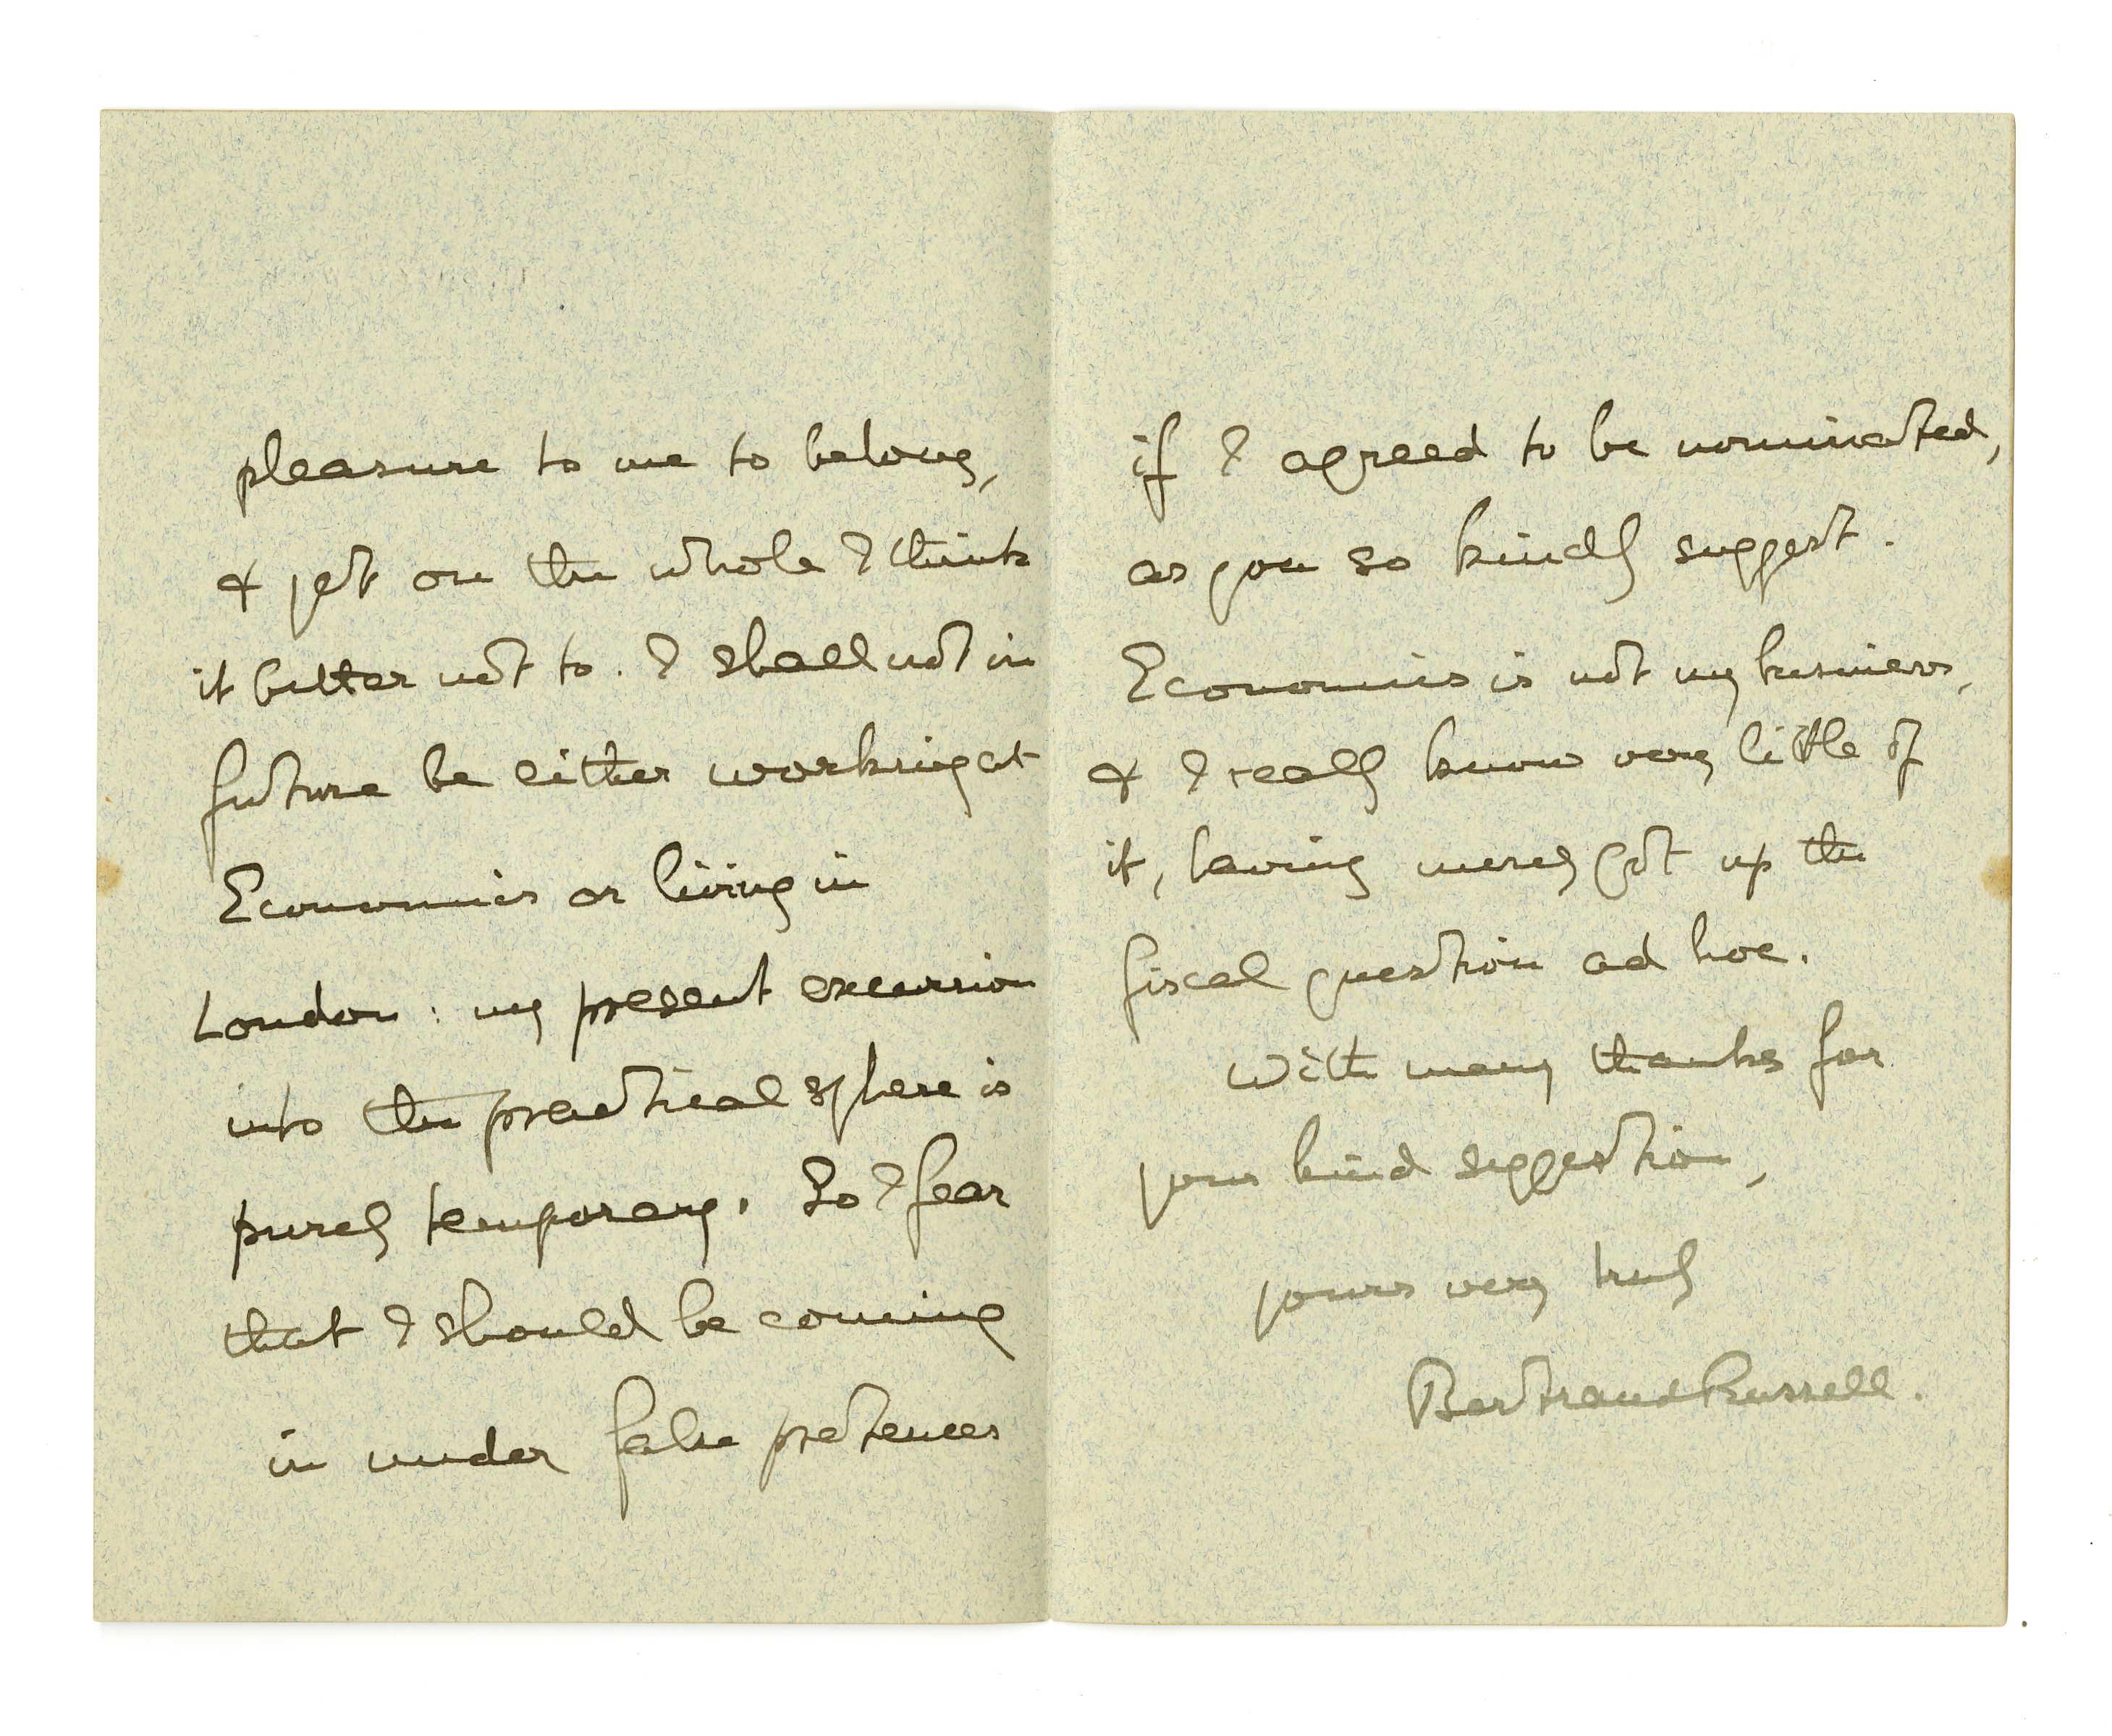 pleasure to me to belong,
& yet on the whole I think
it better not to. I shall not in
future be either working at
Economics or living in
London: my present excursion
into the practical sphere is
purely temporary. So I fear
that I should be coming
in under false pretences
if I agreed to be nominated,
as you so kindly suggest.
Economics is not my business,
& I really know very little of
it, having merely got up the
fiscal question ad hoc.
With many thanks for
your kind suggestion,
yours very truly
Bertrand Russell.